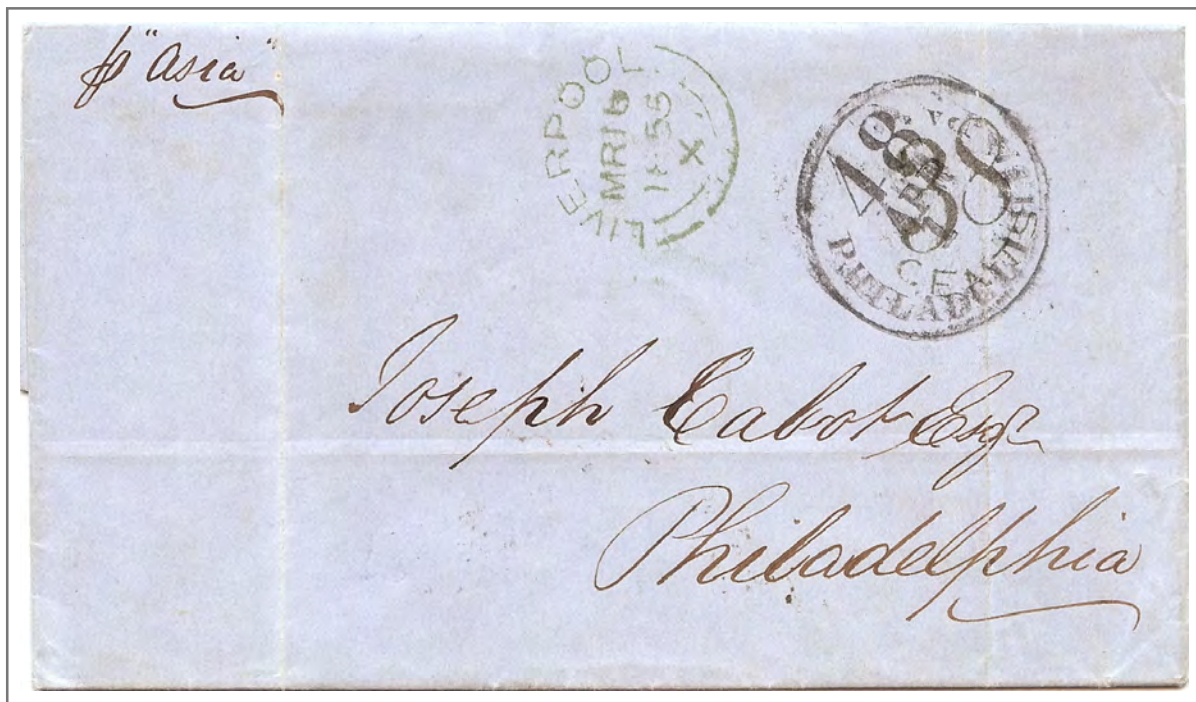 p "Asia"
LIVERPOOL
MR 16
1855
X
48
PHILADELPHIA
Joseph Cabot Esqr
Philadelphia